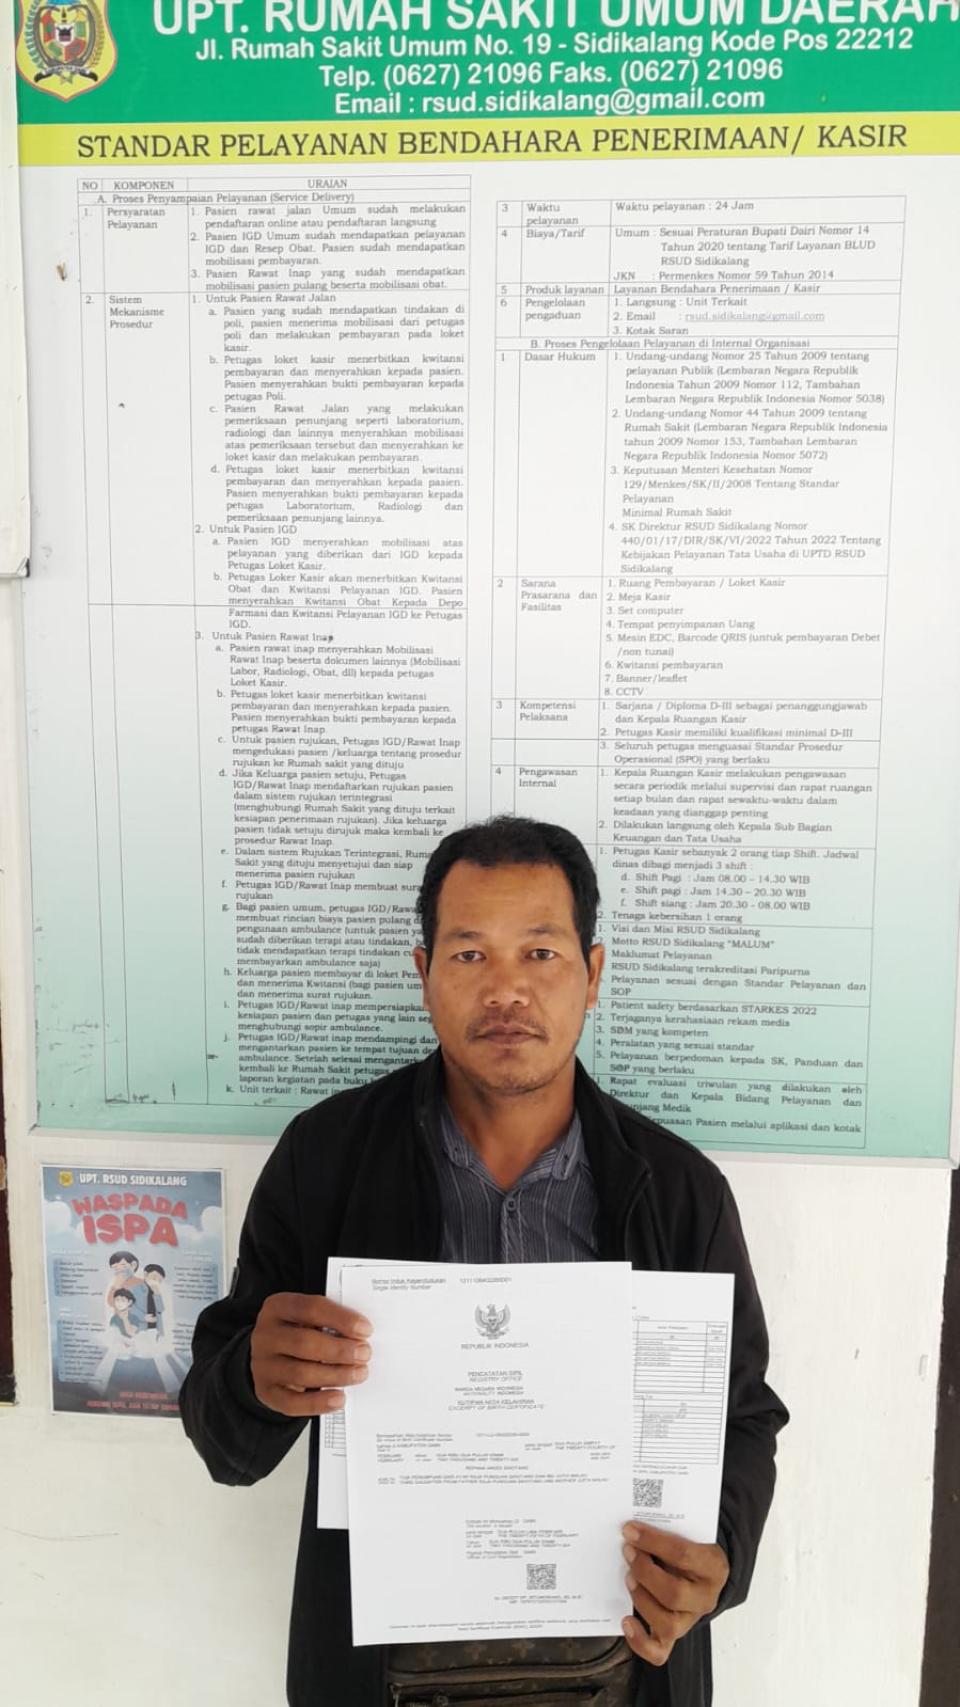 UPT. RUMAH SAKIT UMUM DAERAH
Jl. Rumah Sakit Umum No. 19 - Sidikalang Kode Pos 22212
Telp. (0627) 21096 Faks. (0627) 21096
Email : rsud.sidikalang@gmail.com
STANDAR PELAYANAN BENDAHARA PENERIMAAN/ KASIR
NO KOMPONEN URAIAN
A. Proses Penyampaian Pelayanan (Service Delivery)
1. Persyaratan Pelayanan
1. Pasien rawat jalan Umum sudah melakukan
pendaftaran online atau pendaftaran langsung
2. Pasien IGD Umum sudah mendapatkan pelayanan
IGD dan Resep Obat. Pasien sudah mendapatkan
mobilisasi pembayaran.
3. Pasien Rawat Inap yang sudah mendapatkan
mobilisasi pasien pulang beserta mobilisasi obat.
2. Sistem
Mekanisme
Prosedur
1. Untuk Pasien Rawat Jalan
a. Pasien yang sudah mendapatkan tindakan di
poli, pasien menerima mobilisasi dari petugas
poli dan melakukan pembayaran pada loket
kasir.
b. Petugas loket kasir menerbitkan kwitansi
pembayaran dan menyerahkan kepada pasien.
Pasien menyerahkan bukti pembayaran kepada
petugas Poli.
c. Pasien Rawat Jalan yang melakukan
pemeriksaan penunjang seperti laboratorium,
radiologi dan lainnya menyerahkan mobilisasi
atas pemeriksaan tersebut dan menyerahkan ke
loket kasir dan melakukan pembayaran.
d. Petugas loket kasir menerbitkan kwitansi
pembayaran dan menyerahkan kepada pasien.
Pasien menyerahkan bukti pembayaran kepada
petugas Laboratorium, Radiologi dan
pemeriksaan penunjang lainnya.
2. Untuk Pasien IGD
a. Pasien IGD menyerahkan mobilisasi atas
pelayanan yang diberikan dari IGD kepada
Petugas Loket Kasir.
b. Petugas Loker Kasir akan menerbitkan Kwitansi
Obat dan Kwitansi Pelayanan IGD. Pasien
menyerahkan Kwitansi Obat Kepada Depo
Farmasi dan Kwitansi Pelayanan IGD ke Petugas
IGD.
3. Untuk Pasien Rawat Inap
a. Pasien rawat inap menyerahkan Mobilisasi
Rawat Inap beserta dokumen lainnya (Mobilisasi
Labor, Radiologi, Obat, dll) kepada petugas
Loket Kasir.
b. Petugas loket kasir menerbitkan kwitansi
pembayaran dan menyerahkan kepada pasien.
Pasien menyerahkan bukti pembayaran kepada
petugas Rawat Inap.
c. Untuk pasien rujukan, Petugas IGD/Rawat Inap
mengedukasi pasien /keluarga tentang prosedur
rujukan ke Rumah sakit yang dituju
d. Jika Keluarga pasien setuju, Petugas
IGD/Rawat Inap mendaftarkan rujukan pasien
dalam sistem rujukan terintegrasi
(menghubungi Rumah Sakit yang dituju terkait
kesiapan penerimaan rujukan). Jika keluarga
pasien tidak setuju dirujuk maka kembali ke
prosedur Rawat Inap.
e. Dalam sistem Rujukan Terintegrasi, Rum
Sakit yang dituju menyetujui dan siap
menerima pasien rujukan
f. Petugas IGD/Rawat Inap membuat sura
rujukan
g. Bagi pasien umum, petugas IGD/Rawa
membuat rincian biaya pasien pulang d
pengunaan ambulance (untuk pasien ya
sudah diberikan terapi atau tindakan,
tidak mendapatkan terapi tindakan cu
membayarkan ambulance saja)
h. Keluarga pasien membayar di loket Pem
dan menerima Kwitansi (bagi pasien um
dan menerima surat rujukan.
i. Petugas IGD/Rawat inap mempersiapka
kesiapan pasien dan petugas yang lain seg
menghubungi sopir ambulance.
j. Petugas IGD/Rawat inap mendampingi dan
mengantarkan pasien ke tempat tujuan de
ambulance. Setelah selesai mengantark
kembali ke Rumah Sakit petugas
laporan kegiatan pada buku
k. Unit terkait : Rawat in
3 Waktu
pelayanan
Waktu pelayanan : 24 Jam
4 Biaya/Tarif
Umum : Sesuai Peraturan Bupati Dairi Nomor 14
Tahun 2020 tentang Tarif Layanan BLUD
RSUD Sidikalang
JKN : Permenkes Nomor 59 Tahun 2014
5 Produk layanan Layanan Bendahara Penerimaan / Kasir
6 Pengelolaan
pengaduan
1. Langsung : Unit Terkait
2. Email : rsud.sidikalang@gmail.com
3. Kotak Saran
B. Proses Pengelolaan Pelayanan di Internal Organisasi
1 Dasar Hukum
1. Undang-undang Nomor 25 Tahun 2009 tentang
pelayanan Publik (Lembaran Negara Republik
Indonesia Tahun 2009 Nomor 112, Tambahan
Lembaran Negara Republik Indonesia Nomor 5038)
2. Undang-undang Nomor 44 Tahun 2009 tentang
Rumah Sakit (Lembaran Negara Republik Indonesia
tahun 2009 Nomor 153, Tambahan Lembaran
Negara Republik Indonesia Nomor 5072)
3. Keputusan Menteri Kesehatan Nomor
129/Menkes/SK/II/2008 Tentang Standar
Pelayanan
Minimal Rumah Sakit
4. SK Direktur RSUD Sidikalang Nomor
440/01/17/DIR/SK/VI/2022 Tahun 2022 Tentang
Kebijakan Pelayanan Tata Usaha di UPTD RSUD
Sidikalang
2 Sarana
Prasarana dan
Fasilitas
1. Ruang Pembayaran / Loket Kasir
2. Meja Kasir
3. Set computer
4. Tempat penyimpanan Uang
5. Mesin EDC, Barcode QRIS (untuk pembayaran Debet
/non tunai)
6. Kwitansi pembayaran
7. Banner/leaflet
8. CCTV
3 Kompetensi
Pelaksana
1. Sarjana / Diploma D-III sebagai penanggungjawab
dan Kepala Ruangan Kasir
2. Petugas Kasir memiliki kualifikasi minimal D-III
3. Seluruh petugas menguasai Standar Prosedur
Operasional (SPO) yang berlaku
4 Pengawasan
Internal
1. Kepala Ruangan Kasir melakukan pengawasan
secara periodik melalui supervisi dan rapat ruangan
setiap bulan dan rapat sewaktu-waktu dalam
keadaan yang dianggap penting
2. Dilakukan langsung oleh Kepala Sub Bagian
Keuangan dan Tata Usaha
1. Petugas Kasir sebanyak 2 orang tiap Shift. Jadwal
dinas dibagi menjadi 3 shift :
d. Shift Pagi : Jam 08.00 - 14.30 WIB
e. Shift pagi : Jam 14.30 - 20.30 WIB
f. Shift siang : Jam 20.30 - 08.00 WIB
2. Tenaga kebersihan 1 orang
1. Visi dan Misi RSUD Sidikalang
Motto RSUD Sidikalang "MALUM"
Maklumat Pelayanan
RSUD Sidikalang terakreditasi Paripurna
Pelayanan sesuai dengan Standar Pelayanan dan
SOP
1. Patient safety berdasarkan STARKES 2022
2. Terjaganya kerahasiaan rekam medis
3. SDM yang kompeten
4. Peralatan yang sesuai standar
5. Pelayanan berpedoman kepada SK, Panduan dan
SOP yang berlaku
1. Rapat evaluasi triwulan yang dilakukan oleh
Direktur dan Kepala Bidang Pelayanan dan
unjang Medik
epuasan Pasien melalui aplikasi dan kotak
UPT. RSUD SIDIKALANG
WASPADA
ISPA
Nomor Induk Kependudukan
Single Identity Number
REPUBLIK INDONESIA
PENCATATAN SIPIL
REGISTRY OFFICE
WARGA NEGARA INDONESIA
NATIONALITY INDONESIA
KUTIPAN AKTA KELAHIRAN
EXCERPT OF BIRTH CERTIFICATE